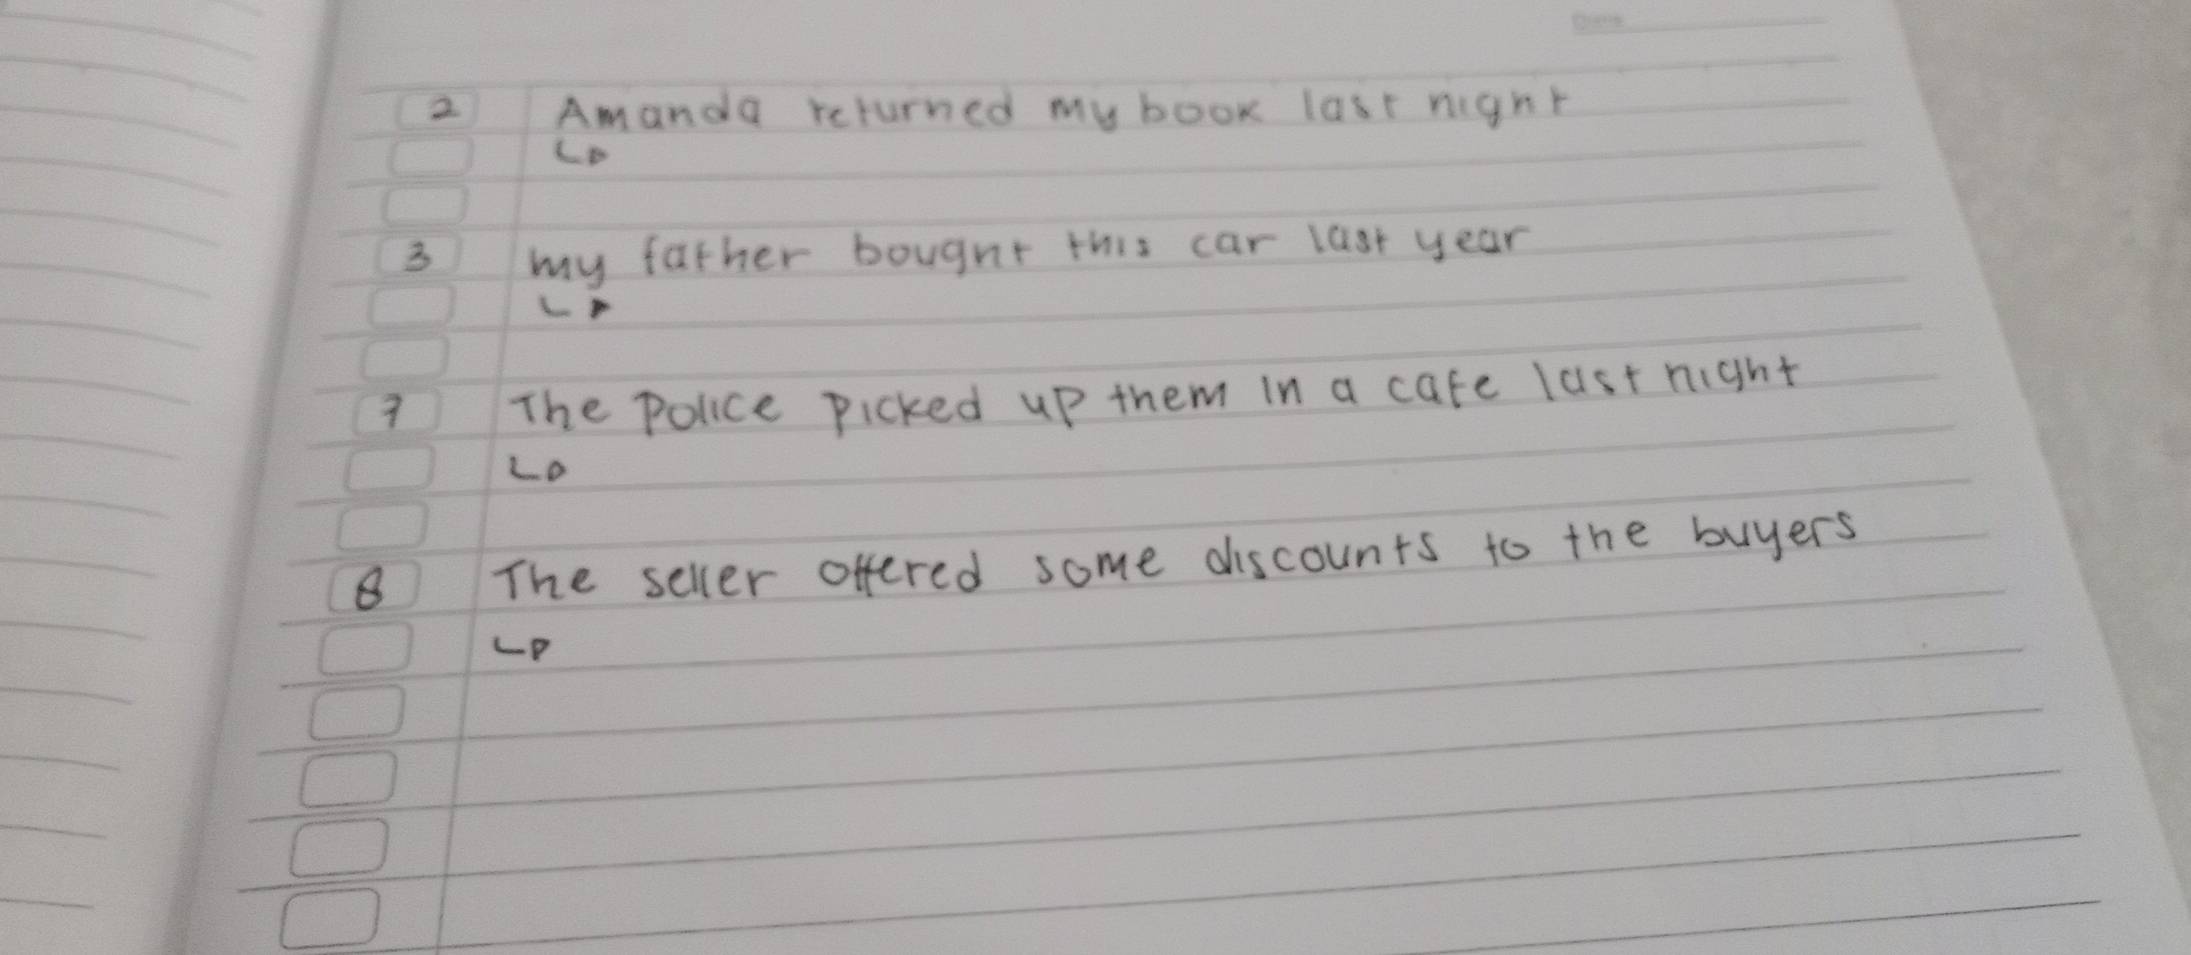 2 Amanda returned my book last night
3 my father bought this car last year
7 The Police Picked up them in a cafe last night
8 The seller offered some discounts to the buyers